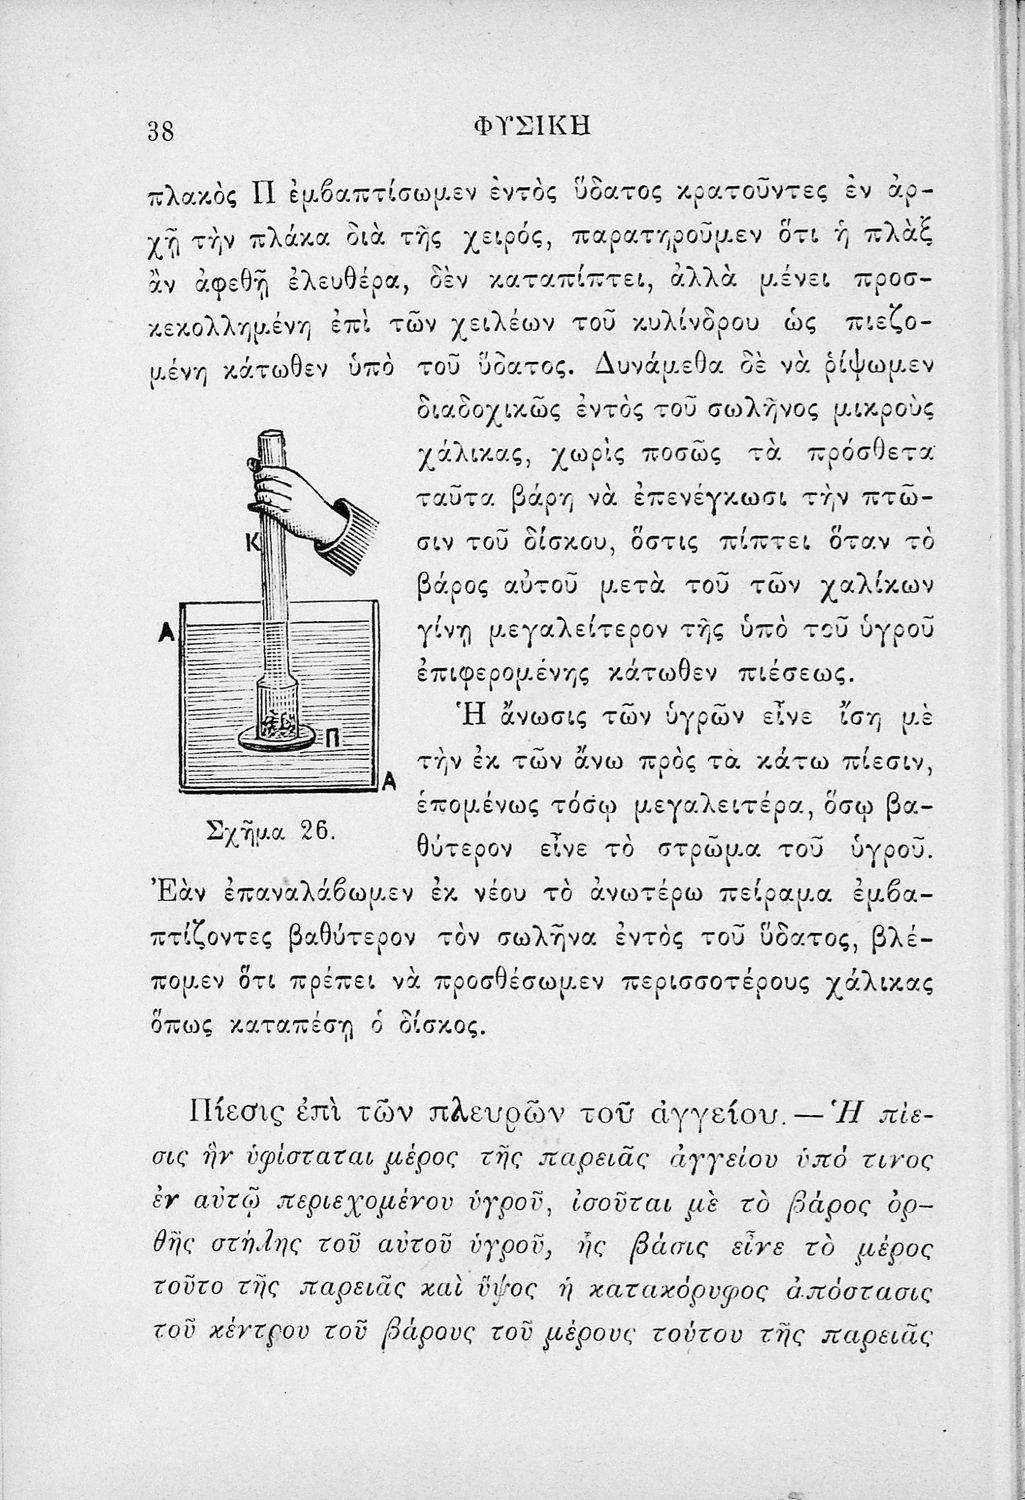 38
ΦΥΣΙΚΗ
πλακὸς Π ἐμβαπτίσωμεν ἐντὸς ὕδατος κρατοῦντες ἐν ἀρ-
χῇ τὴν πλάκα διὰ τῆς χειρός, παρατηροῦμεν ὅτι ἡ πλὰξ
ἂν ἀφεθῇ ἐλευθέρα, δὲν καταπίπτει, ἀλλὰ μένει προσ-
κεκολλημένη ἐπὶ τῶν χειλέων τοῦ κυλίνδρου ὡς πιεζο-
μένη κάτωθεν ὑπὸ τοῦ ὕδατος. Δυνάμεθα δὲ νὰ ῥίψωμεν
διαδοχικῶς ἐντὸς τοῦ σωλῆνος μικροὺς
χάλικας, χωρὶς ποσῶς τὰ πρόσθετα
ταῦτα βάρη νὰ ἐπενέγκωσι τὴν πτῶ-
σιν τοῦ δίσκου, ὅστις πίπτει ὅταν τὸ
βάρος αὐτοῦ μετὰ τοῦ τῶν χαλίκων
γίνῃ μεγαλείτερον τῆς ὑπὸ τοῦ ὑγροῦ
ἐπιφερομένης κάτωθεν πιέσεως.
Ἡ ἄνωσις τῶν ὑγρῶν εἶνε ἴση μὲ
τὴν ἐκ τῶν ἄνω πρὸς τὰ κάτω πίεσιν,
ἑπομένως τόσῳ μεγαλειτέρα, ὅσῳ βα-
θύτερον εἶνε τὸ στρῶμα τοῦ ὑγροῦ.
Κ
Α
Π
Α
Σχῆμα 26.
Ἐὰν ἐπαναλάβωμεν ἐκ νέου τὸ ἀνωτέρω πείραμα ἐμβα-
πτίζοντες βαθύτερον τὸν σωλῆνα ἐντὸς τοῦ ὕδατος, βλέ-
πομεν ὅτι πρέπει νὰ προσθέσωμεν περισσοτέρους χάλικας
ὅπως καταπέσῃ ὁ δίσκος.
Πίεσις ἐπὶ τῶν πλευρῶν τοῦ ἀγγείου. — Ἡ πίε-
σις ἣν ὑφίσταται μέρος τῆς παρειᾶς ἀγγείου ὑπό τινος
ἐν αὐτῷ περιεχομένου ὑγροῦ, ἰσοῦται μὲ τὸ βάρος ὀρ-
θῆς στήλης τοῦ αὐτοῦ ὑγροῦ, ἧς βάσις εἶνε τὸ μέρος
τοῦτο τῆς παρειᾶς καὶ ὕψος ἡ κατακόρυφος ἀπόστασις
τοῦ κέντρου τοῦ βάρους τοῦ μέρους τούτου τῆς παρειᾶς